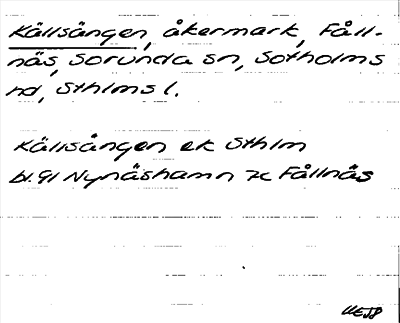 Källsängen, åkermark, Fåll-
näs, Sorunda sn, Sotholms
hd, Sthlms l.
Källsängen ek Sthlm
bl. 91 Nynäshamn 7c Fållnäs